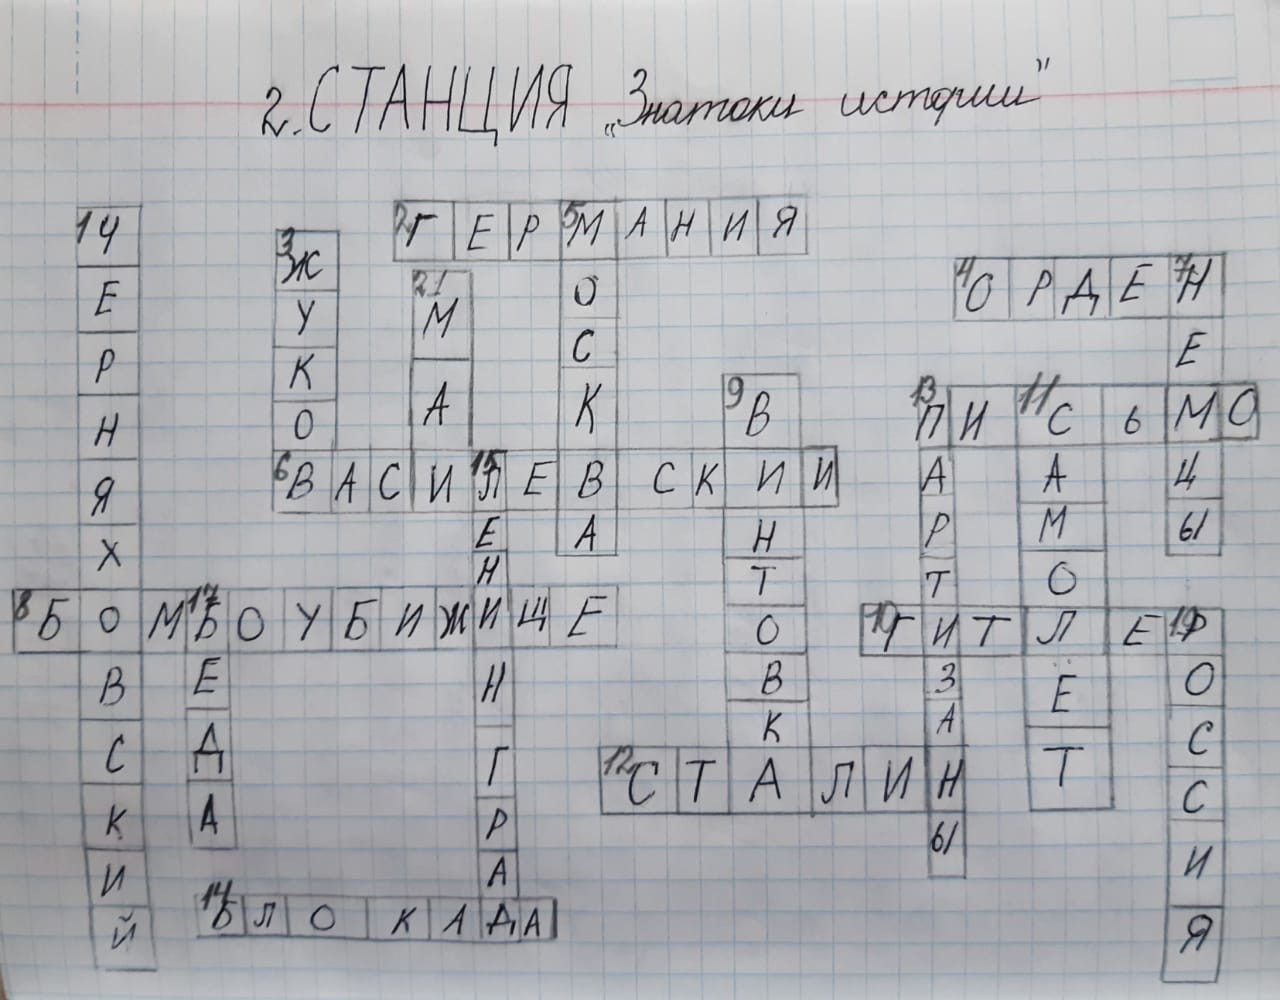 2. СТАНЦИЯ „Знатоки истории"
1 ЧЕРНЯХОВСКИЙ
2 ГЕРМАНИЯ
3 ЖУКОВ
21 МАИ
5 МОСКВА
4 ОРДЕН
7 НЕМЦЫ
9 ВИНТОВКА
13 ПАРТИЗАНЫ
ПИСЬМО
11 САМОЛЁТ
6 ВАСИЛЕВСКИЙ
15 ЛЕНИНГРАД
8 БОМБОУБИЖИЩЕ
17 БЕДА
10 ГИТЛЕР
19 РОССИЯ
12 СТАЛИН
14 БЛОКАДА